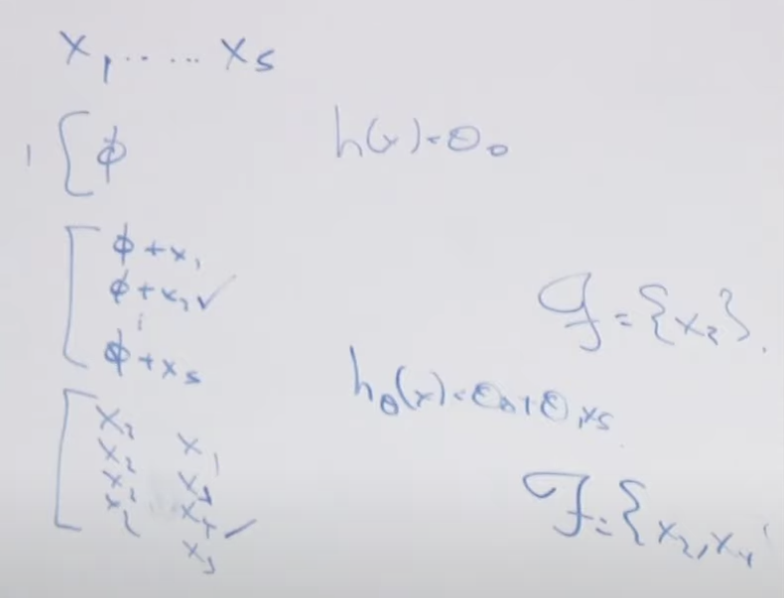 x₁ ..... x₅
1 [ ϕ h(x) = θ₀
ϕ + x₁
ϕ + x₂ ✓
⋮
ϕ + x₅
F = {x₂}.
h_θ(x) = θ₀ + θ₁x₅
x₂ x₁
x₂ x₃
x₂ x₄ ✓
x₂ x₅
F = {x₂, x₄